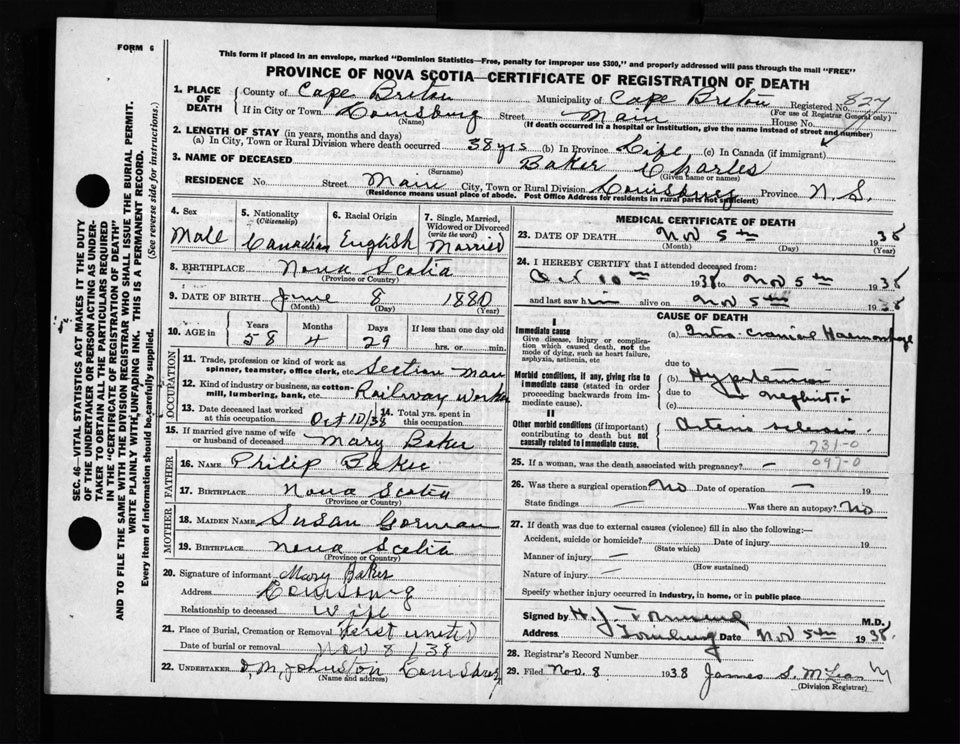 FORM 6
This form if placed in an envelope, marked "Dominion Statistics—Free, penalty for improper use $300," and properly addressed will pass through the mail "FREE"
PROVINCE OF NOVA SCOTIA—CERTIFICATE OF REGISTRATION OF DEATH
1. PLACE OF DEATH
County of Cape Breton Municipality of Cape Breton Registered No. 827
(For use of Registrar General only)
If in City or Town Louisburg Street Main House No.
(Name) (If death occurred in a hospital or institution, give the name instead of street and number)
2. LENGTH OF STAY (in years, months and days)
(a) In City, Town or Rural Division where death occurred 38 yrs (b) In Province Life (c) In Canada (if immigrant)
3. NAME OF DECEASED Baker Charles
(Surname) (Given name or names)
RESIDENCE No. Street Main City, Town or Rural Division Louisburg Province N. S.
(Residence means usual place of abode. Post Office Address for residents in rural parts not sufficient)
4. Sex Male
5. Nationality (Citizenship) Canadian
6. Racial Origin English
7. Single, Married, Widowed or Divorced (write the word) Married
8. BIRTHPLACE Nova Scotia
(Province or Country)
9. DATE OF BIRTH June 8 1880
(Month) (Day)
10. AGE in Years Months Days If less than one day old
58 4 29 hrs. or min.
OCCUPATION
11. Trade, profession or kind of work as spinner, teamster, office clerk, etc. Section man
12. Kind of industry or business, as cotton-mill, lumbering, bank, etc. Railway Worker
13. Date deceased last worked at this occupation Oct 10/38
14. Total yrs. spent in this occupation
15. If married give name of wife or husband of deceased Mary Baker
FATHER
16. NAME Philip Baker
17. BIRTHPLACE Nova Scotia
(Province or Country)
MOTHER
18. MAIDEN NAME Susan Gorman
19. BIRTHPLACE Nova Scotia
(Province or Country)
20. Signature of informant Mary Baker
Address Louisburg
Relationship to deceased Wife
21. Place of Burial, Cremation or Removal First United
Date of burial or removal Nov 8 / 38
22. UNDERTAKER D, M, Johnston Louisburg
(Name and address)
MEDICAL CERTIFICATE OF DEATH
23. DATE OF DEATH Nov 5th 1938
(Month) (Day) (Year)
24. I HEREBY CERTIFY that I attended deceased from:
Oct 10th 1938 to Nov 5th 1938
and last saw him alive on Nov 5th 1938
CAUSE OF DEATH
I
Immediate cause
Give disease, injury or complication which caused death, not the mode of dying, such as heart failure, asphyxia, asthenia, etc
(a) Intra-cranial Haemorrhage
due to
Morbid conditions, if any, giving rise to immediate cause (stated in order proceeding backwards from immediate cause).
(b) Hypertension
due to & nephritis
(c)
II
Other morbid conditions (if important) contributing to death but not causally related to immediate cause.
Arterio sclerosis
731-0
097-0
25. If a woman, was the death associated with pregnancy? —
26. Was there a surgical operation? No Date of operation — 19
State findings — Was there an autopsy? No
27. If death was due to external causes (violence) fill in also the following:—
Accident, suicide or homicide? Date of injury 19
(State which)
Manner of injury —
(How sustained)
Nature of injury —
Specify whether injury occurred in industry, in home, or in public place
Signed by H. J. M.D.
Address Louisburg Date Nov 5th 1938
28. Registrar's Record Number
29. Filed Nov. 8 1938 James S. McLean
(Division Registrar)
SEC. 46—VITAL STATISTICS ACT MAKES IT THE DUTY
OF THE UNDERTAKER OR PERSON ACTING AS UNDER-
TAKER TO OBTAIN ALL THE PARTICULARS REQUIRED
IN THE "CERTIFICATE OF REGISTRATION OF DEATH"
AND TO FILE THE SAME WITH THE DIVISION REGISTRAR WHO SHALL ISSUE THE BURIAL PERMIT.
WRITE PLAINLY WITH UNFADING INK. THIS IS A PERMANENT RECORD.
Every item of information should be carefully supplied. (See reverse side for instructions.)